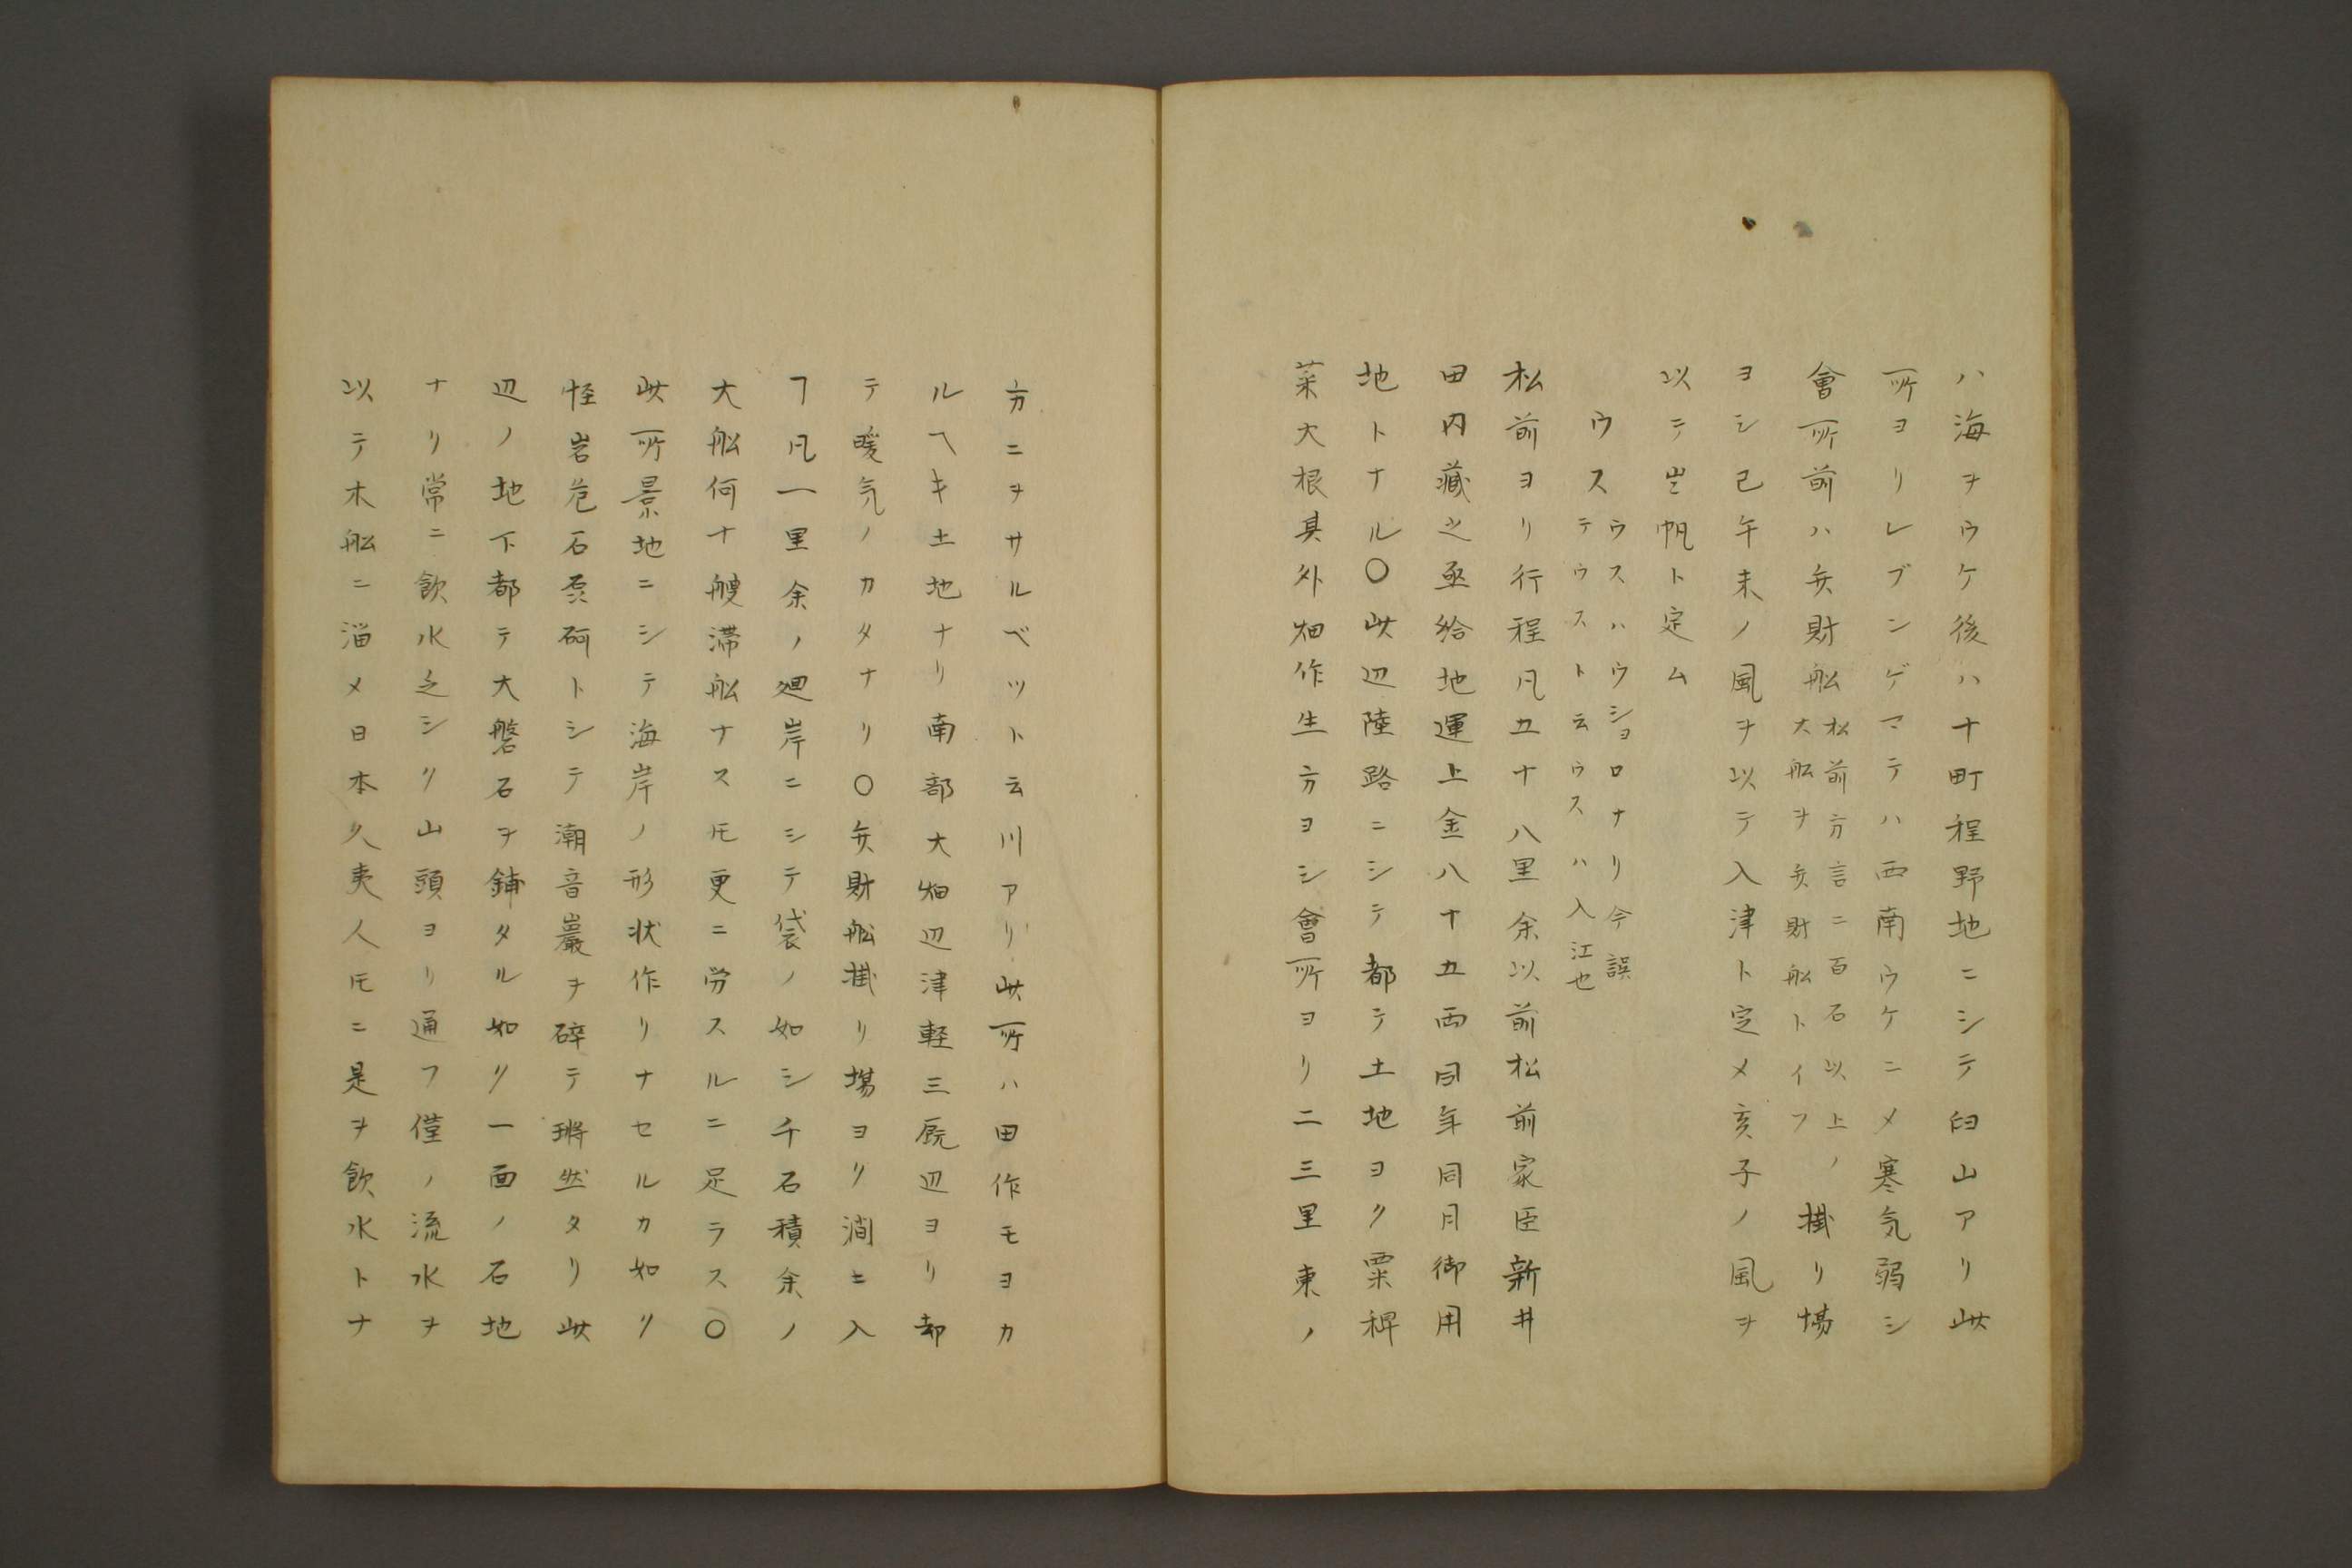 ハ海ヲウケ後ハ十町程野地ニシテ臼山アリ此
所ヨリレブンゲマテハ西南ウケニメ寒気弱シ
會所前ハ弁財船松前方言ニ百石以上ノ大船ヲ弁財船トイフ掛リ場
ヨシ己午未ノ風ヲ以テ入津ト定メ亥子ノ風ヲ
以テ出帆ト定ム
ウスウスハウショロナリ今誤テウスト云ウスハ入江也
松前ヨリ行程凡五十八里余以前松前家臣新井
田内藏之丞給地運上金八十五両同年同月御用
地トナル〇此辺陸路ニシテ都テ土地ヨク粟稗
菜大根其外畑作生方ヨシ會所ヨリ二三里東ノ
方ニヲサルベツト云川アリ此所ハ田作モヨカ
ルヘキ土地ナリ南部大畑辺津軽三厩辺ヨリ却
テ暖気ノカタナリ〇弁財船掛リ場ヨリ澗ヒ入
ヿ凡一里余ノ廻岸ニシテ袋ノ如シ千石積余ノ
大船何十艘滞船ナスモ更ニ労スルニ足ラス〇
此所景地ニシテ海岸ノ形状作リナセルカ如リ
怪岩危石磊砢トシテ潮音巖ヲ碎テ鏘然タリ此
辺ノ地下都テ大磐石ヲ鋪タル如リ一面ノ石地
ナリ常ニ飲水乏シリ山頭ヨリ通フ僅ノ流水ヲ
以テ木船ニ溜メ日本人夷人モニ是ヲ飲水トナ